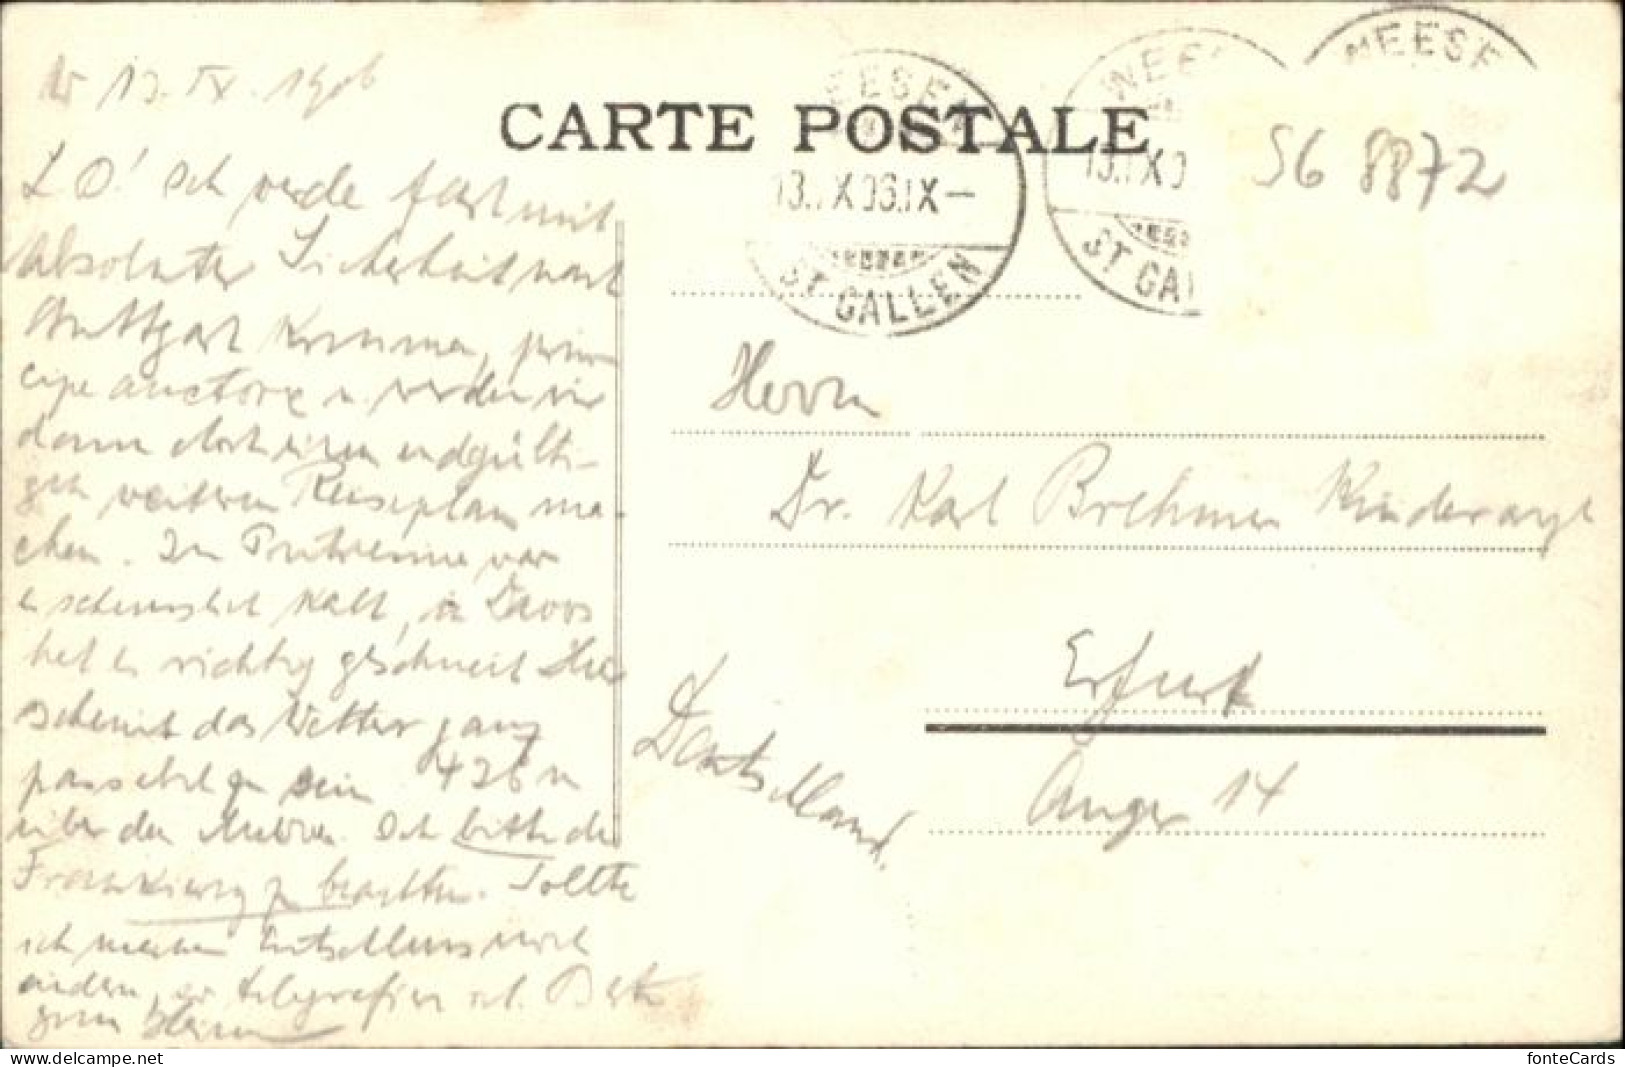 W 13. IX. 1906
L O! Ich werde fast mit
absoluter Sicherheit nach
Stuttgart kommen, prin-
cipe auctore u. werden wir
dann dort einen endgülti-
gen weiteren Reiseplan ma-
chen. In Pontresina war
es scheusslich kalt, in Davos
hat es richtig geschneit Hier
scheint das Wetter ganz
passabel zu sein 426 m
über dem Meere. Ich bitte die
Frankierung zu beachten. Sollte
ich meinen Entschluss noch
ändern, so telegrafiere ich.
CARTE POSTALE
WEESEN
13.IX.06.IX-
ST GALLEN
WEE
13.IX.0
ST GAL
WEESE
SG 8872
Herrn
Dr. Karl Brehmer Kinderarzt
Erfurt
Anger 14
Deutschland.
fonteCards